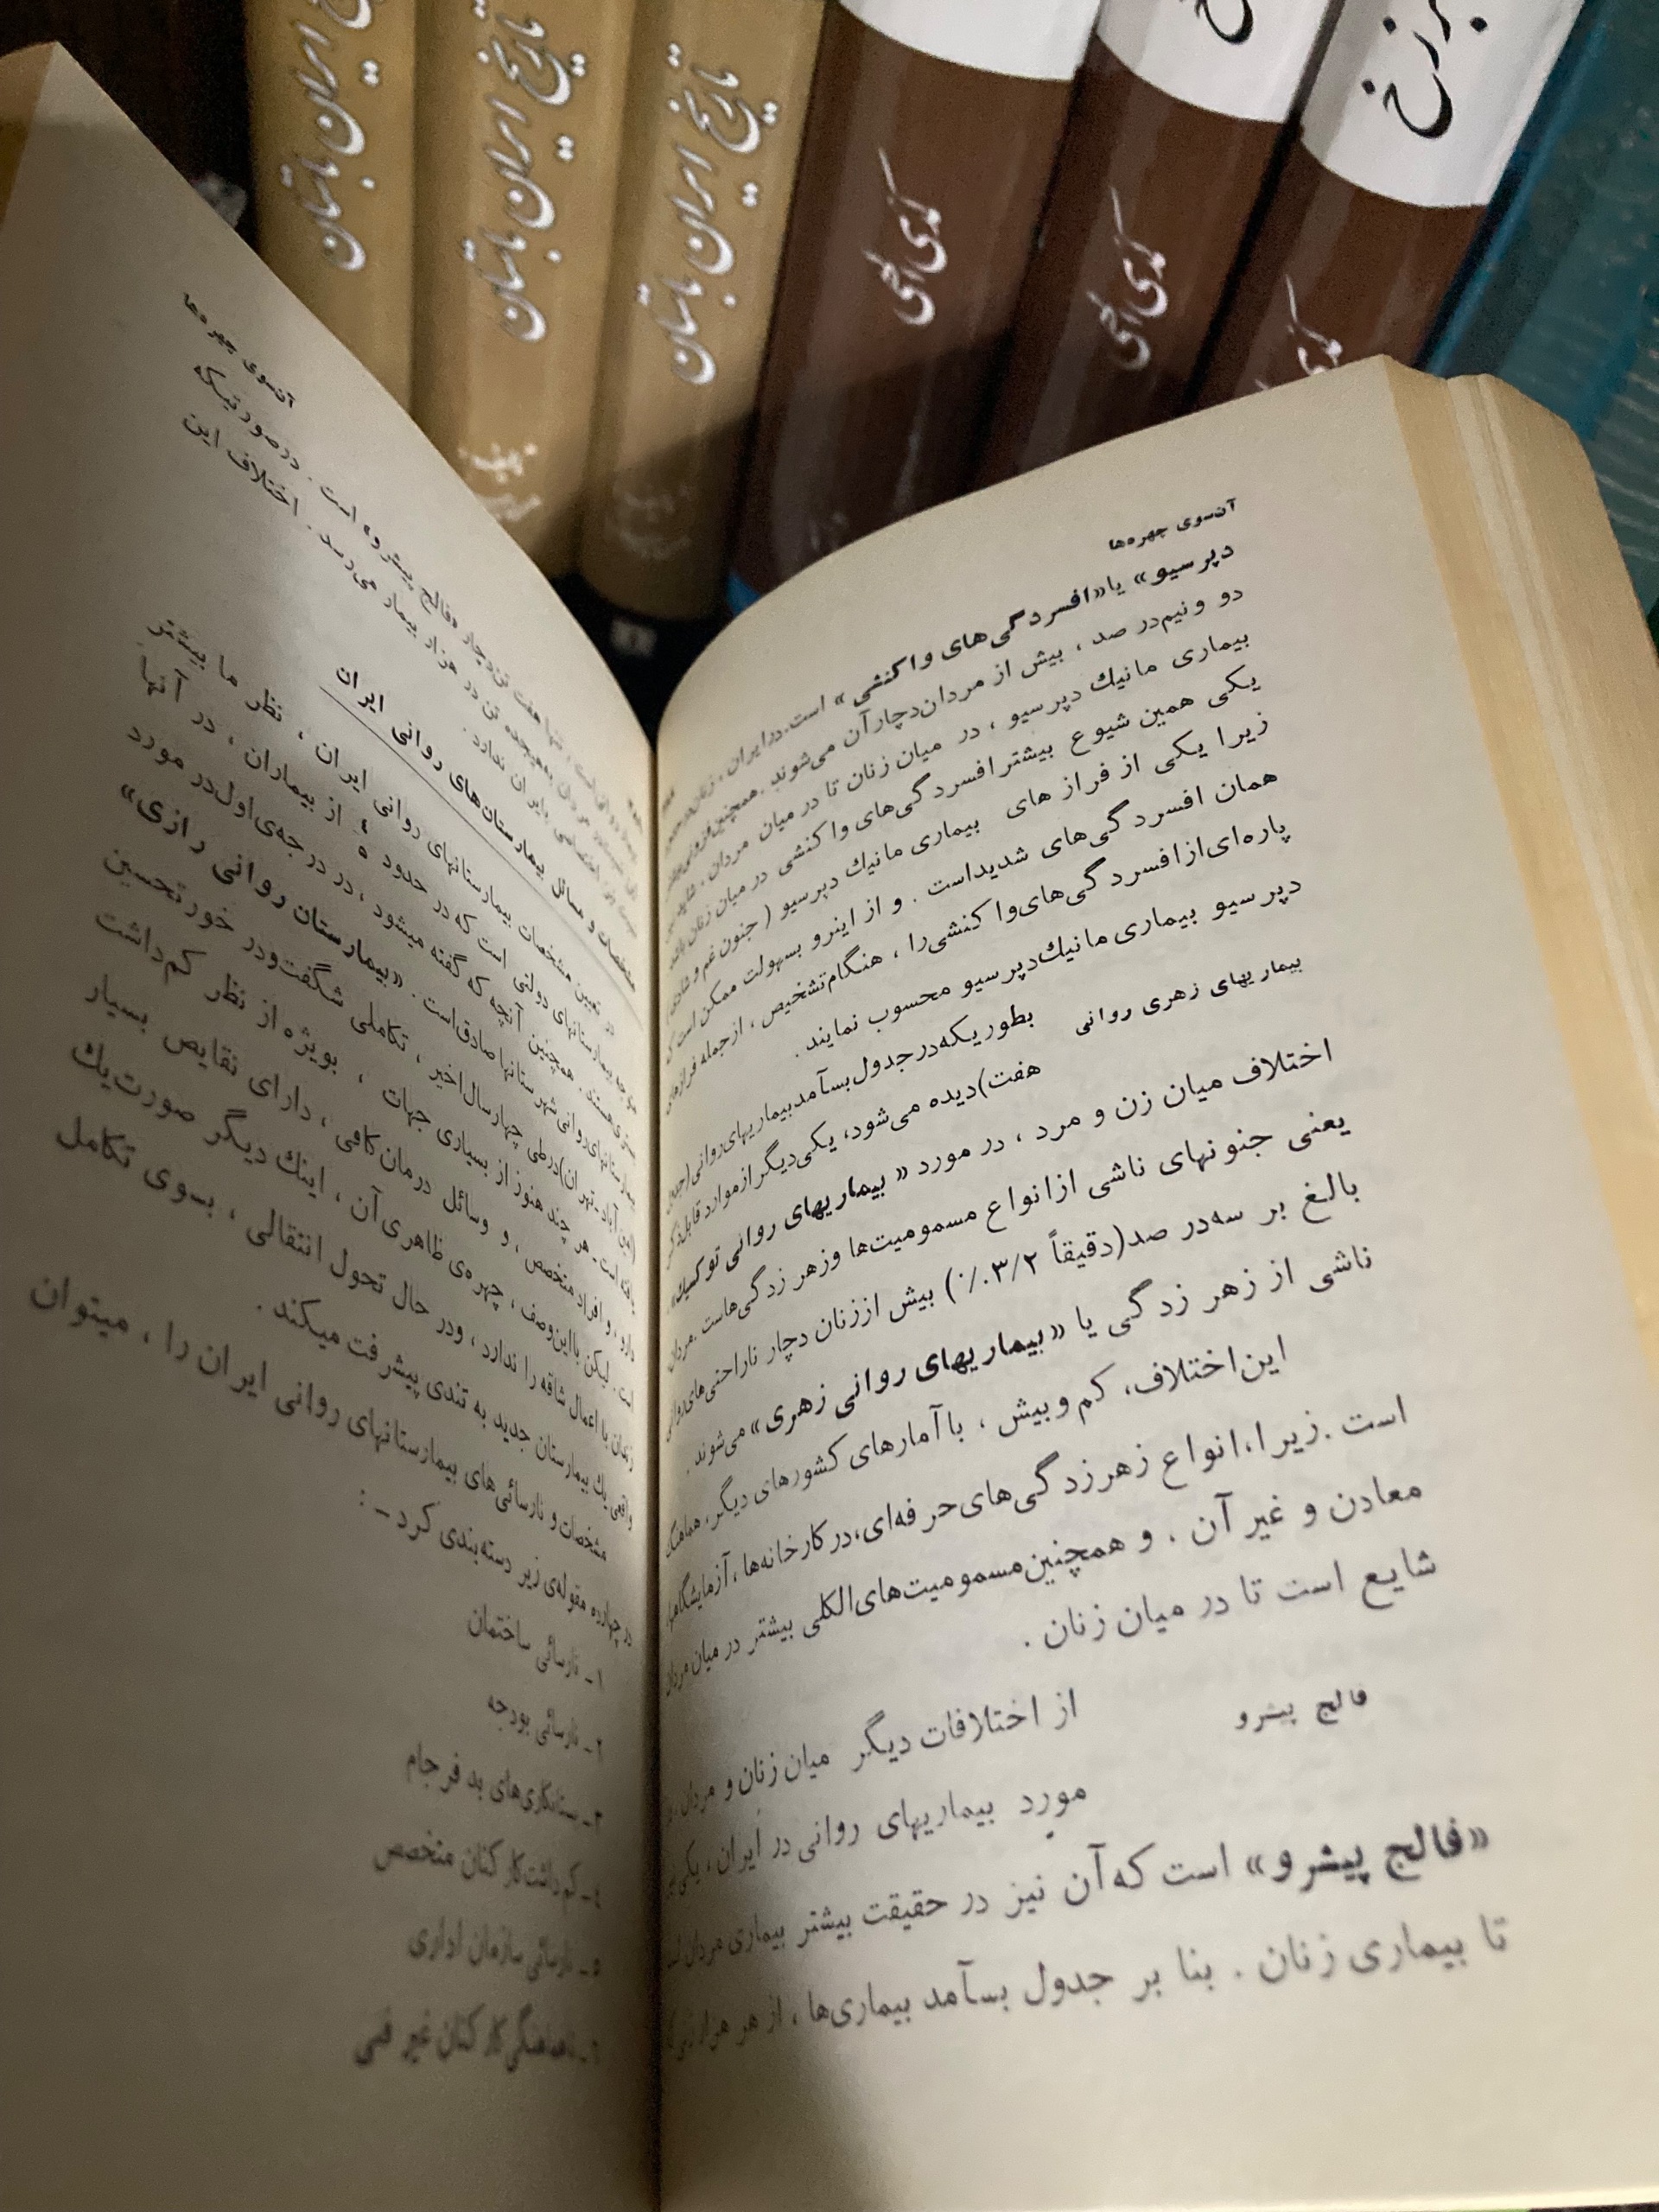 تاریخ ایران باستان
تاریخ ایران باستان
تاریخ ایران باستان
کمدی الهی
کمدی الهی
برزخ
آن‌سوی چهره‌ها
دپرسیو» یا «افسردگی‌های واکنشی» است. در ایران، زنان
دو ونیم‌در صد ، بیش از مردان‌دچارآن می‌شوند. همچنین
بیماری مانیك دپرسیو ، در میان زنان تا در میان مردان ،
یکی همین شیوع بیشتر افسردگی‌های واکنشی در میان زنان
زیرا یکی از فراز های بیماری مانیك دپرسیو ( جنون غم و شادی
همان افسردگی‌های شدیداست . و از اینرو بسهولت ممکن است که
پاره‌ای‌از افسردگی‌های‌واکنشی‌را ، هنگام‌تشخیص ، از جمله فرازهای
دپرسیو بیماری مانیك‌دپرسیو محسوب نمایند .
بیماریهای زهری روانی
بطوریکه‌در جدول‌بسآمدبیماریهای‌روانی(جدول
هفت)دیده می‌شود، یکی‌دیگر ازموارد
اختلاف میان زن و مرد ، در مورد « بیماریهای روانی توکسیك»
یعنی جنونهای ناشی ازانواع مسمومیت‌ها وزهر زدگی‌هاست . مردان
بالغ بر سه‌در صد(دقیقاً ۰۳/۲٪) بیش اززنان دچار ناراحتی‌های‌روانی
ناشی از زهر زدگی یا «بیماریهای روانی زهری» می‌شوند .
این‌اختلاف، کم وبیش ، با آمارهای کشورهای دیگر، هماهنگ
است .زیرا،انواع زهرزدگی‌های‌حرفه‌ای،در کارخانه‌ها ، آزمایشگاهها
معادن و غیر آن . و همچنین‌مسمومیت‌های‌الکلی بیشتر در میان مردان
شایع است تا در میان زنان .
فالج پیشرو
از اختلافات دیگر میان زنان و مردان، در
مورد بیماریهای روانی در ایران ، یکی
«فالج پیشرو» است که آن نیز در حقیقت بیشتر بیماری مردان
تا بیماری زنان . بنا بر جدول بسآمد بیماری‌ها ، از هر هزار
آن‌سوی چهره‌ها
تنها هفت تن‌دچار «فالج پیشرو» است . درصورتیکه
مردان به‌هیجده تن در هزار بیمار می‌رسد . اختلاف این
اختصاصی بایران ندارد .
مشخصات و مسائل بیمارستان‌های روانی ایران
در تعیین مشخصات بیمارستانهای روانی ایران ، نظر ما بیشتر
بیمارستانهای دولتی است که در حدود از بیماران ، در آنها
بستری هستند. همچنین آنچه که گفته میشود ، در درجه‌ی‌اول‌در مورد
بیمارستانهای‌روانی‌شهرستانها صادق‌است . «بیمارستان روانی رازی»
تهران)درطی چهارسال‌اخیر ، تکاملی شگفت‌ودر خورتحسین
یافته است-هر چند هنوز از بسیاری جهات ، بویژه از نظر کم‌داشت
دارو ، و افراد متخصص ، و وسائل درمان‌کافی ، دارای نقایص بسیار
است. لیکن بااین‌وصف ، چهره‌ی ظاهری آن ، اینك دیگر صورت‌یك
زندان با اعمال شاقه را ندارد ، ودر حال تحول انتقالی ، بسوی تکامل
واقعی یك بیمارستان جدید به تندی پیشرفت میکند .
مشخصات و نارسائی‌های بیمارستانهای روانی ایران را ، میتوان
در چهارده مقوله‌ی زیر دسته‌بندی کرد - :
۱ـ نارسائی ساختمان
۲ـ نارسائی بودجه
۳ـ ستانکاری‌های بد فرجام
٤ـ کم‌داشت‌کارکنان متخصص
٥ـ نارسائی سازمان اداری
٦ـ ناهماهنگی کارکنان غیر فنی